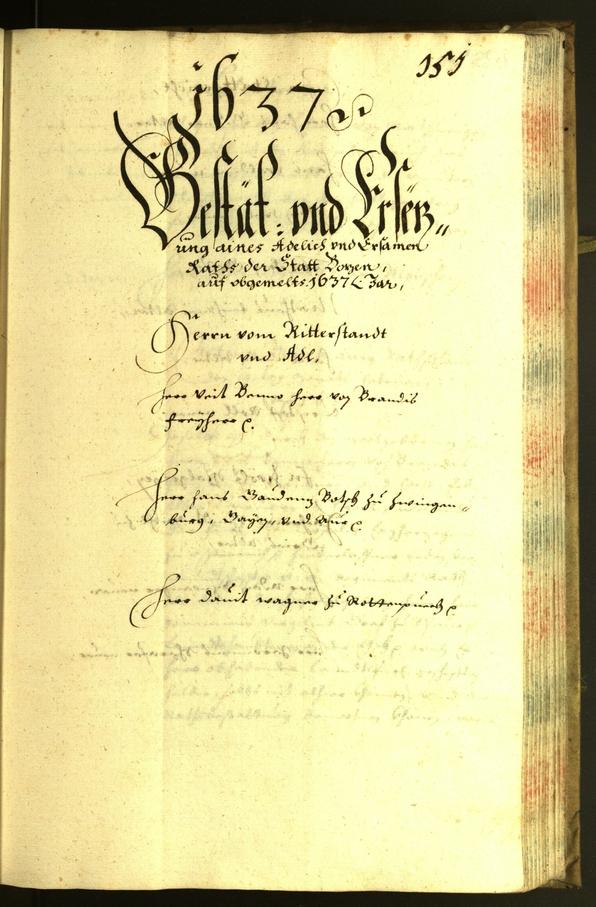 151
1637
Bestät: vnd Ersez„
ung aines Adelich vnd Ersamen
Raths der Statt Bozen,
auf obgemelts 1637 Jar,
Herrn vom Ritterstandt
vnd Adl,
Herr Veit Benno Herr von Brandis
Freyherr
Herr Hans Gaudenz Botsch zu Zwingen„
burg, vnd Aur
Herr Dauit Wagner zu Rottenpuech